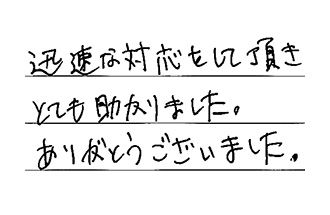 迅速な対応をして頂き
とても助かりました。
ありがとうございました。